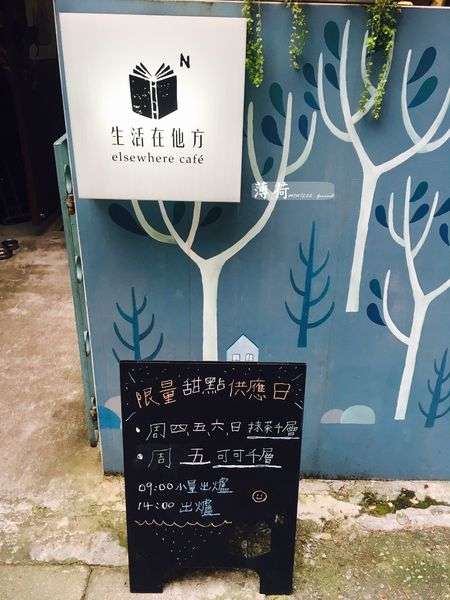 N
生活在他方
elsewhere café
薄荷
限量甜點供應日
・周四、五、六、日 抹茶千層
・周 五 可可千層
09:00 小量出爐
14:00 出爐
N